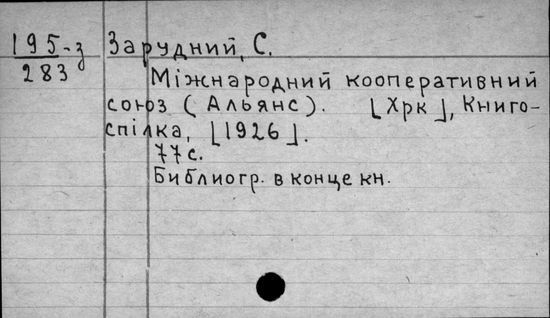 195-з
283
Зарудний, С.
Міжнародний кооперативний
союз (Альянс). [Хрк], Книго-
спілка, [1926].
77с.
Библиогр. в конце кн.